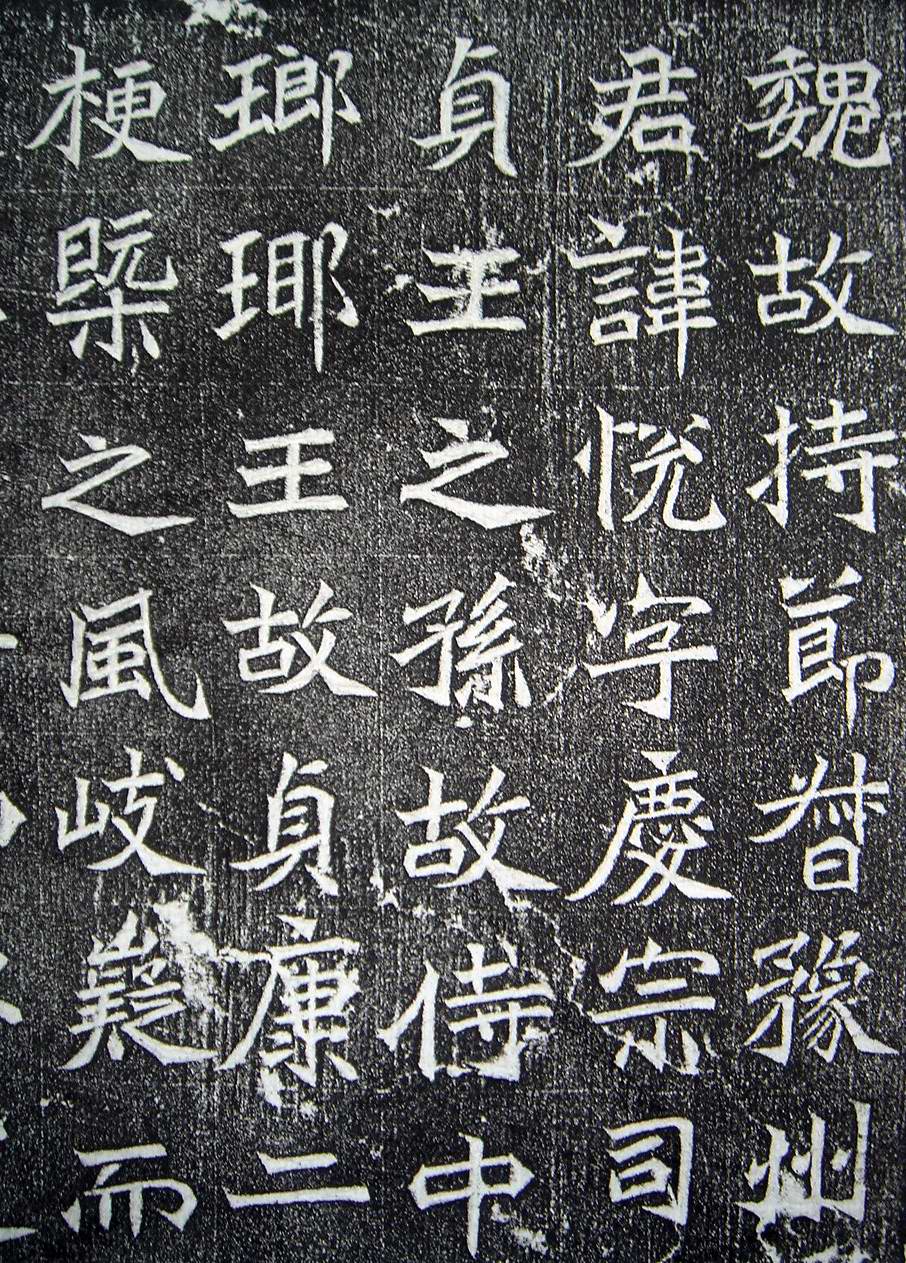 魏故持莭督豫州
君諱悅字慶宗司
貞王之孫故侍中
瑯瑘王故貞康二
梗槩之風岐嶷而